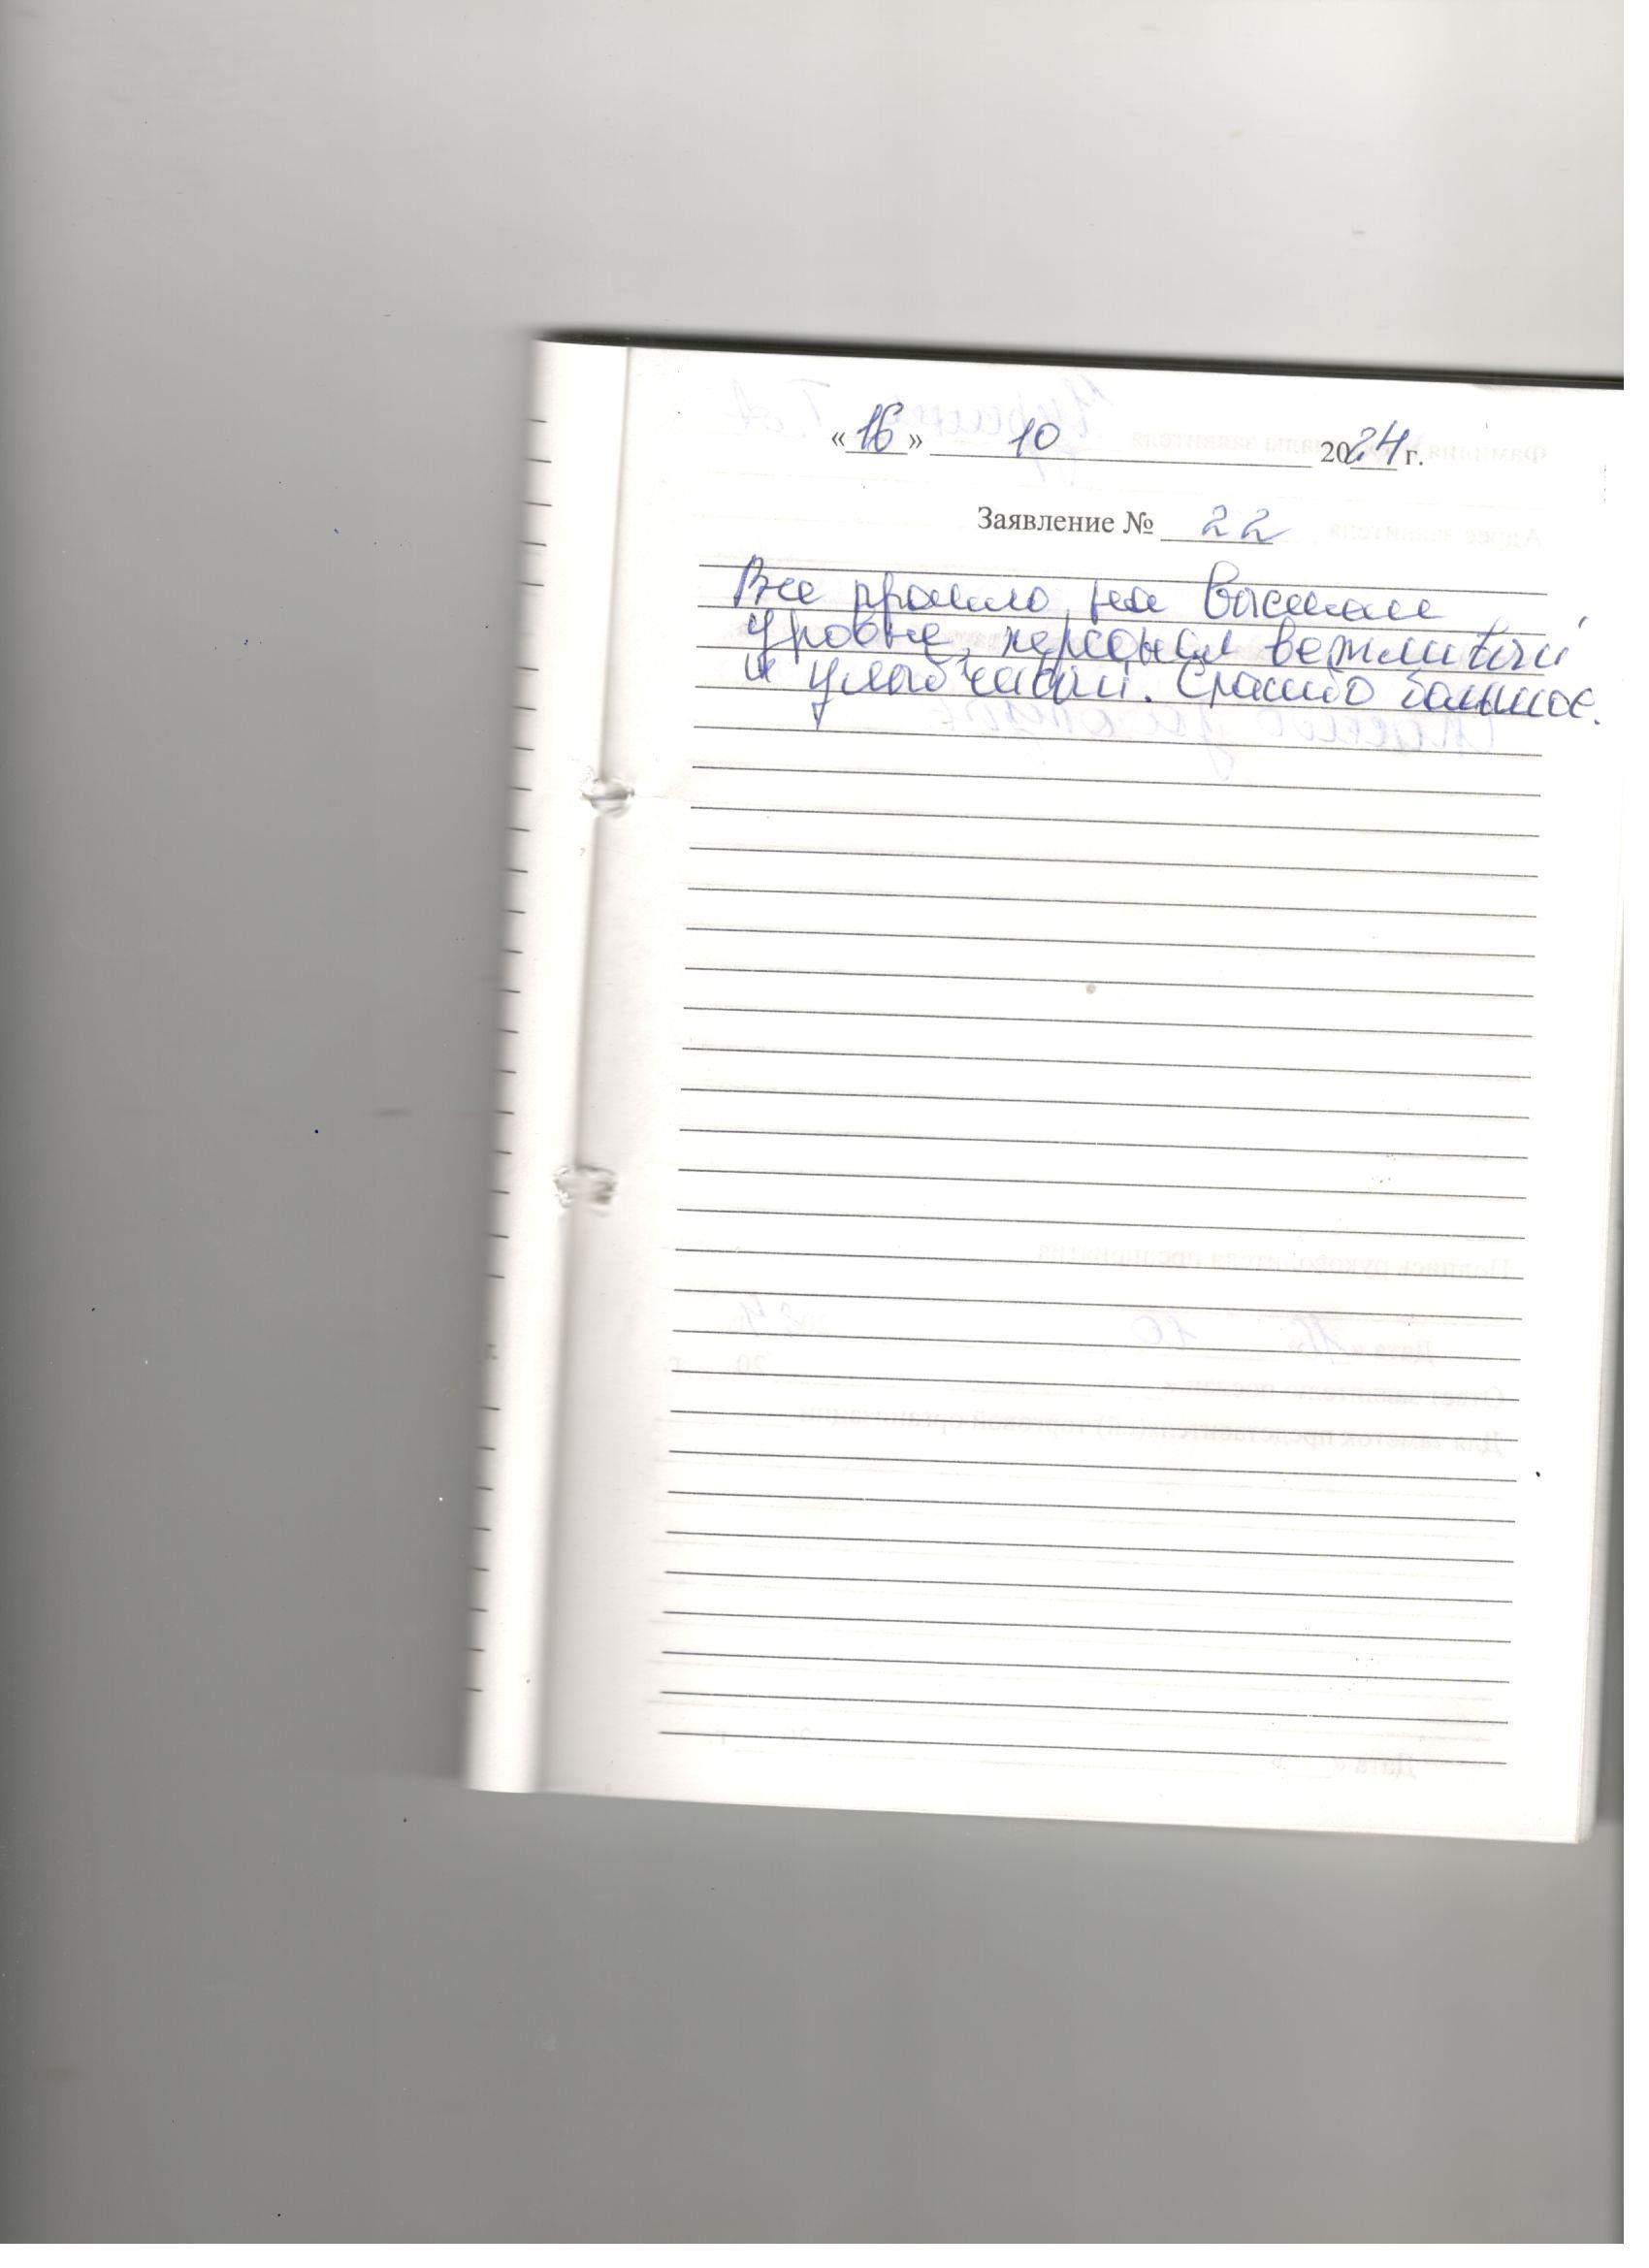 «16» 10 2024 г.
Заявление № 22
Все прошло на высшем
уровне, персонал вежливый
и улыбчивый. Спасибо большое.